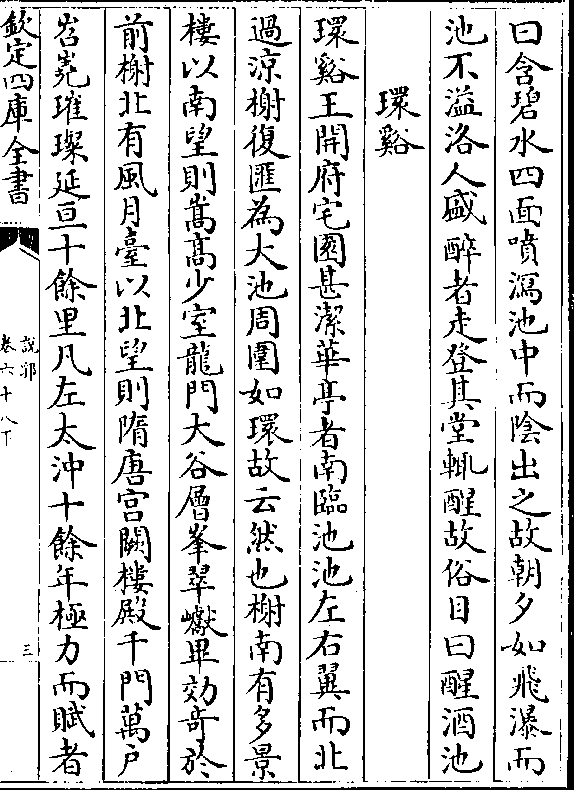 曰含碧水四面噴瀉池中而陰出之故朝夕如飛瀑而
池不溢洛人盛醉者走登其堂輒醒故俗目曰醒酒池
環谿
環谿王開府宅園甚潔華亭者南臨池池左右翼而北
過涼榭復匯為大池周圍如環故云然也榭南有多景
樓以南望則嵩高少室龍門大谷層峯翠巘畢効奇於
前榭北有風月臺以北望則隋唐宫闕樓殿千門萬户
岧嶤璀璨延亘十餘里凡左太沖十餘年極力而賦者
欽定四庫全書
說郛
卷六十八下
三